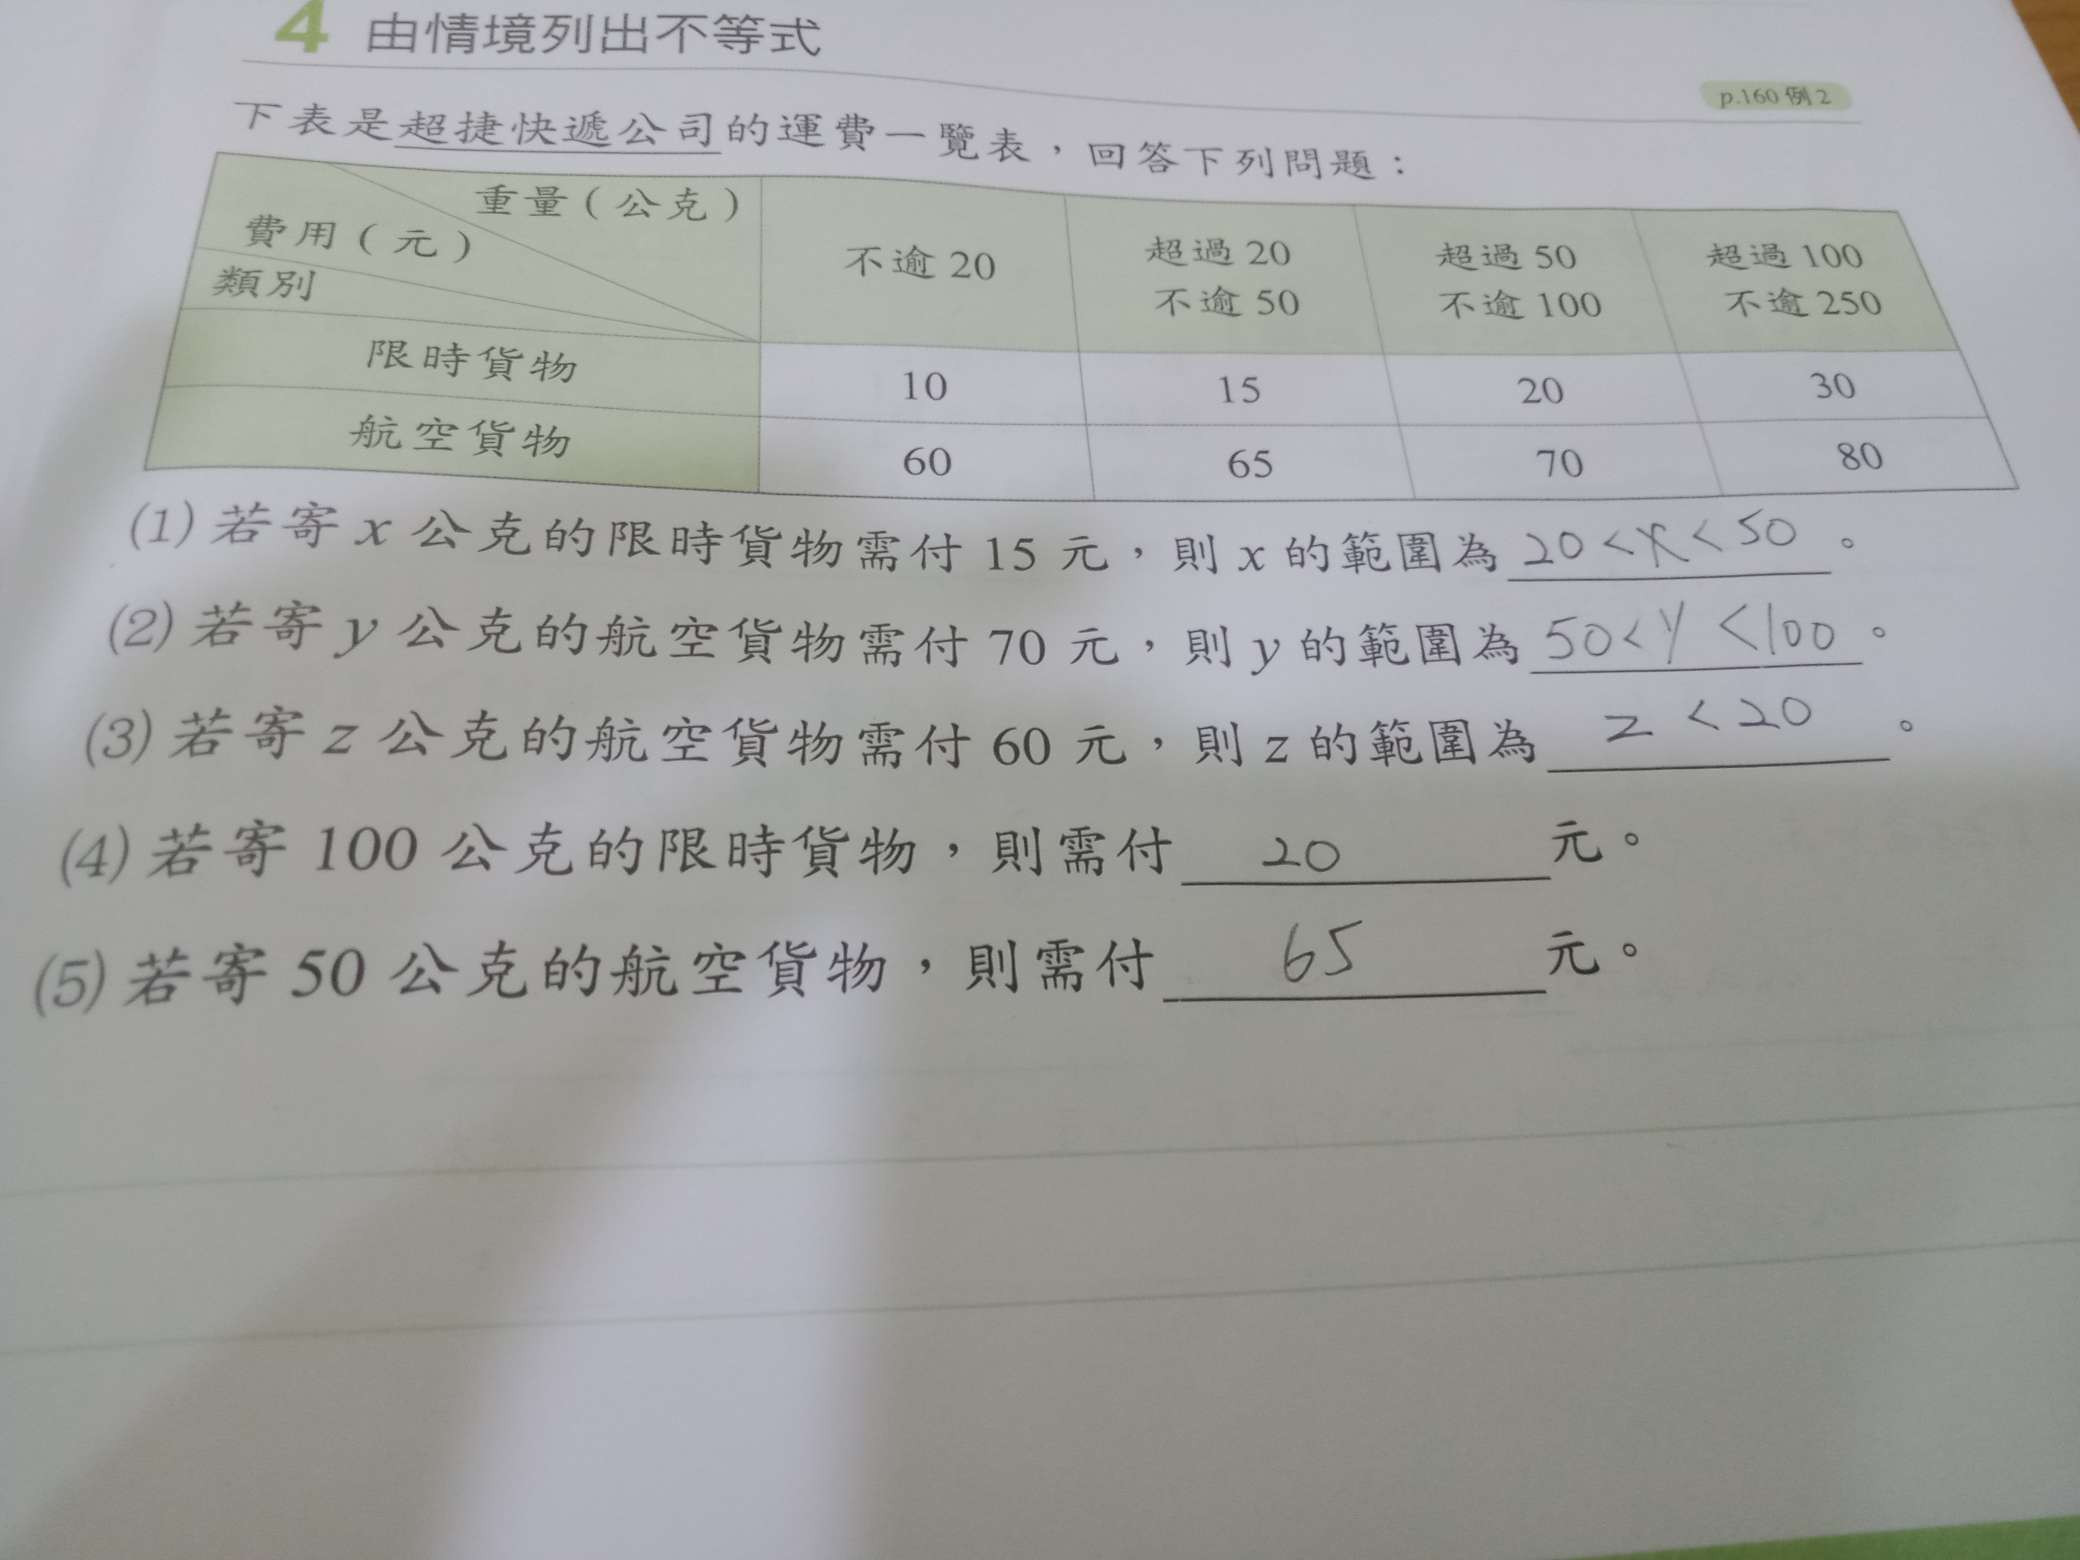 4 由情境列出不等式
p.160例2
下表是超捷快遞公司的運費一覽表，回答下列問題：
重量（公克）
費用（元）
類別
不逾20
超過20
不逾50
超過50
不逾100
超過100
不逾250
限時貨物 10 15 20 30
航空貨物 60 65 70 80
(1)若寄x公克的限時貨物需付15元，則x的範圍為20<x<50。
(2)若寄y公克的航空貨物需付70元，則y的範圍為50<y<100。
(3)若寄z公克的航空貨物需付60元，則z的範圍為z<20。
(4)若寄100公克的限時貨物，則需付20元。
(5)若寄50公克的航空貨物，則需付65元。